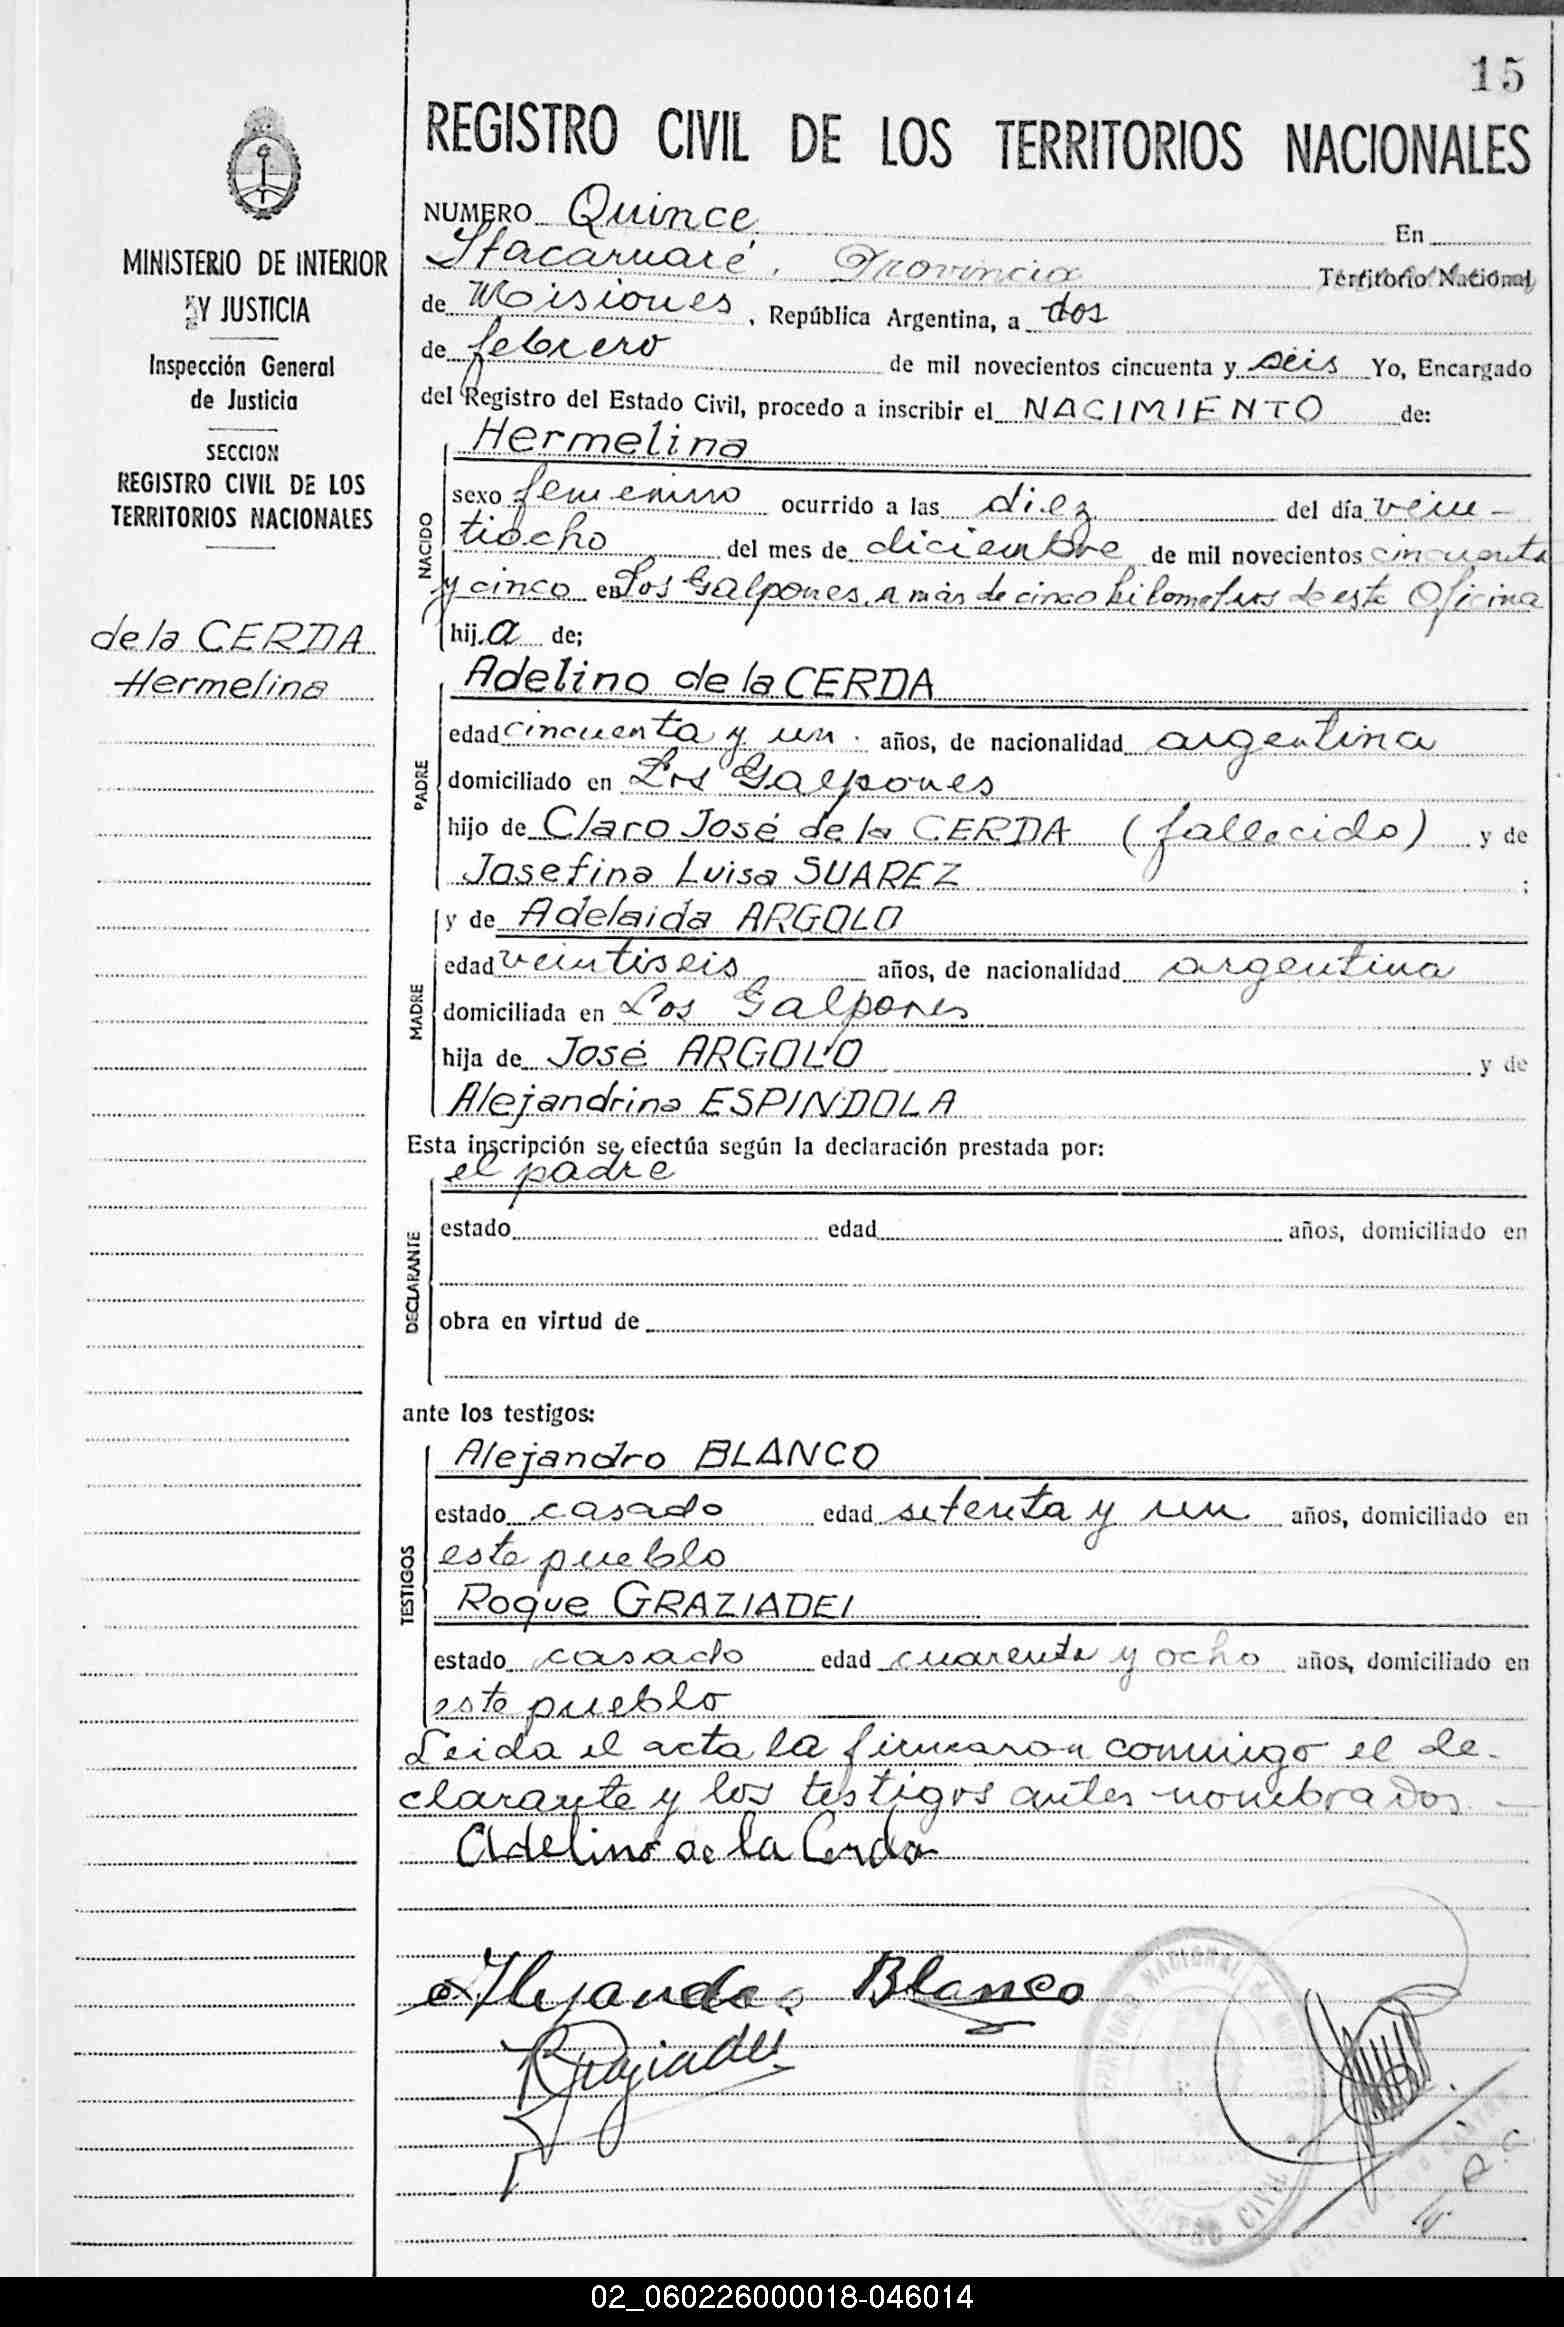 15
REGISTRO CIVIL DE LOS TERRITORIOS NACIONALES
MINISTERIO DE INTERIOR
Y JUSTICIA
Inspección General
de Justicia
SECCION
REGISTRO CIVIL DE LOS
TERRITORIOS NACIONALES
de la CERDA
Hermelina
NUMERO Quince En
Itacaruaré, Provincia Territorio Nacional
de Misiones, República Argentina, a dos
de febrero de mil novecientos cincuenta y seis Yo, Encargado
del Registro del Estado Civil, procedo a inscribir el NACIMIENTO de:
NACIDO
Hermelina
sexo femenino ocurrido a las diez del día vein-
tiocho del mes de diciembre de mil novecientos cincuenta
y cinco en Los Galpones, a más de cinco kilometros de esta Oficina
hij.a de;
PADRE
Adelino de la CERDA
edad cincuenta y un años, de nacionalidad argentina
domiciliado en Los Galpones
hijo de Claro José de la CERDA (fallecido) y de
Josefina Luisa SUAREZ ;
MADRE
y de Adelaida ARGOLO
edad veintiseis años, de nacionalidad argentina
domiciliada en Los Galpones
hija de José ARGOLO y de
Alejandrina ESPINDOLA
Esta inscripción se efectúa según la declaración prestada por:
DECLARANTE
el padre
estado edad años, domiciliado en
obra en virtud de
ante los testigos:
TESTIGOS
Alejandro BLANCO
estado casado edad setenta y un años, domiciliado en
este pueblo
Roque GRAZIADEI
estado casado edad cuarenta y ocho años, domiciliado en
este pueblo
Leida el acta la firmaron conmigo el de-
clarante y los testigos antes nombrados. -
Adelino de la Cerda
Alejandro Blanco
RGraziadei
NACIONAL
REGISTRO CIVIL
02_060226000018-046014